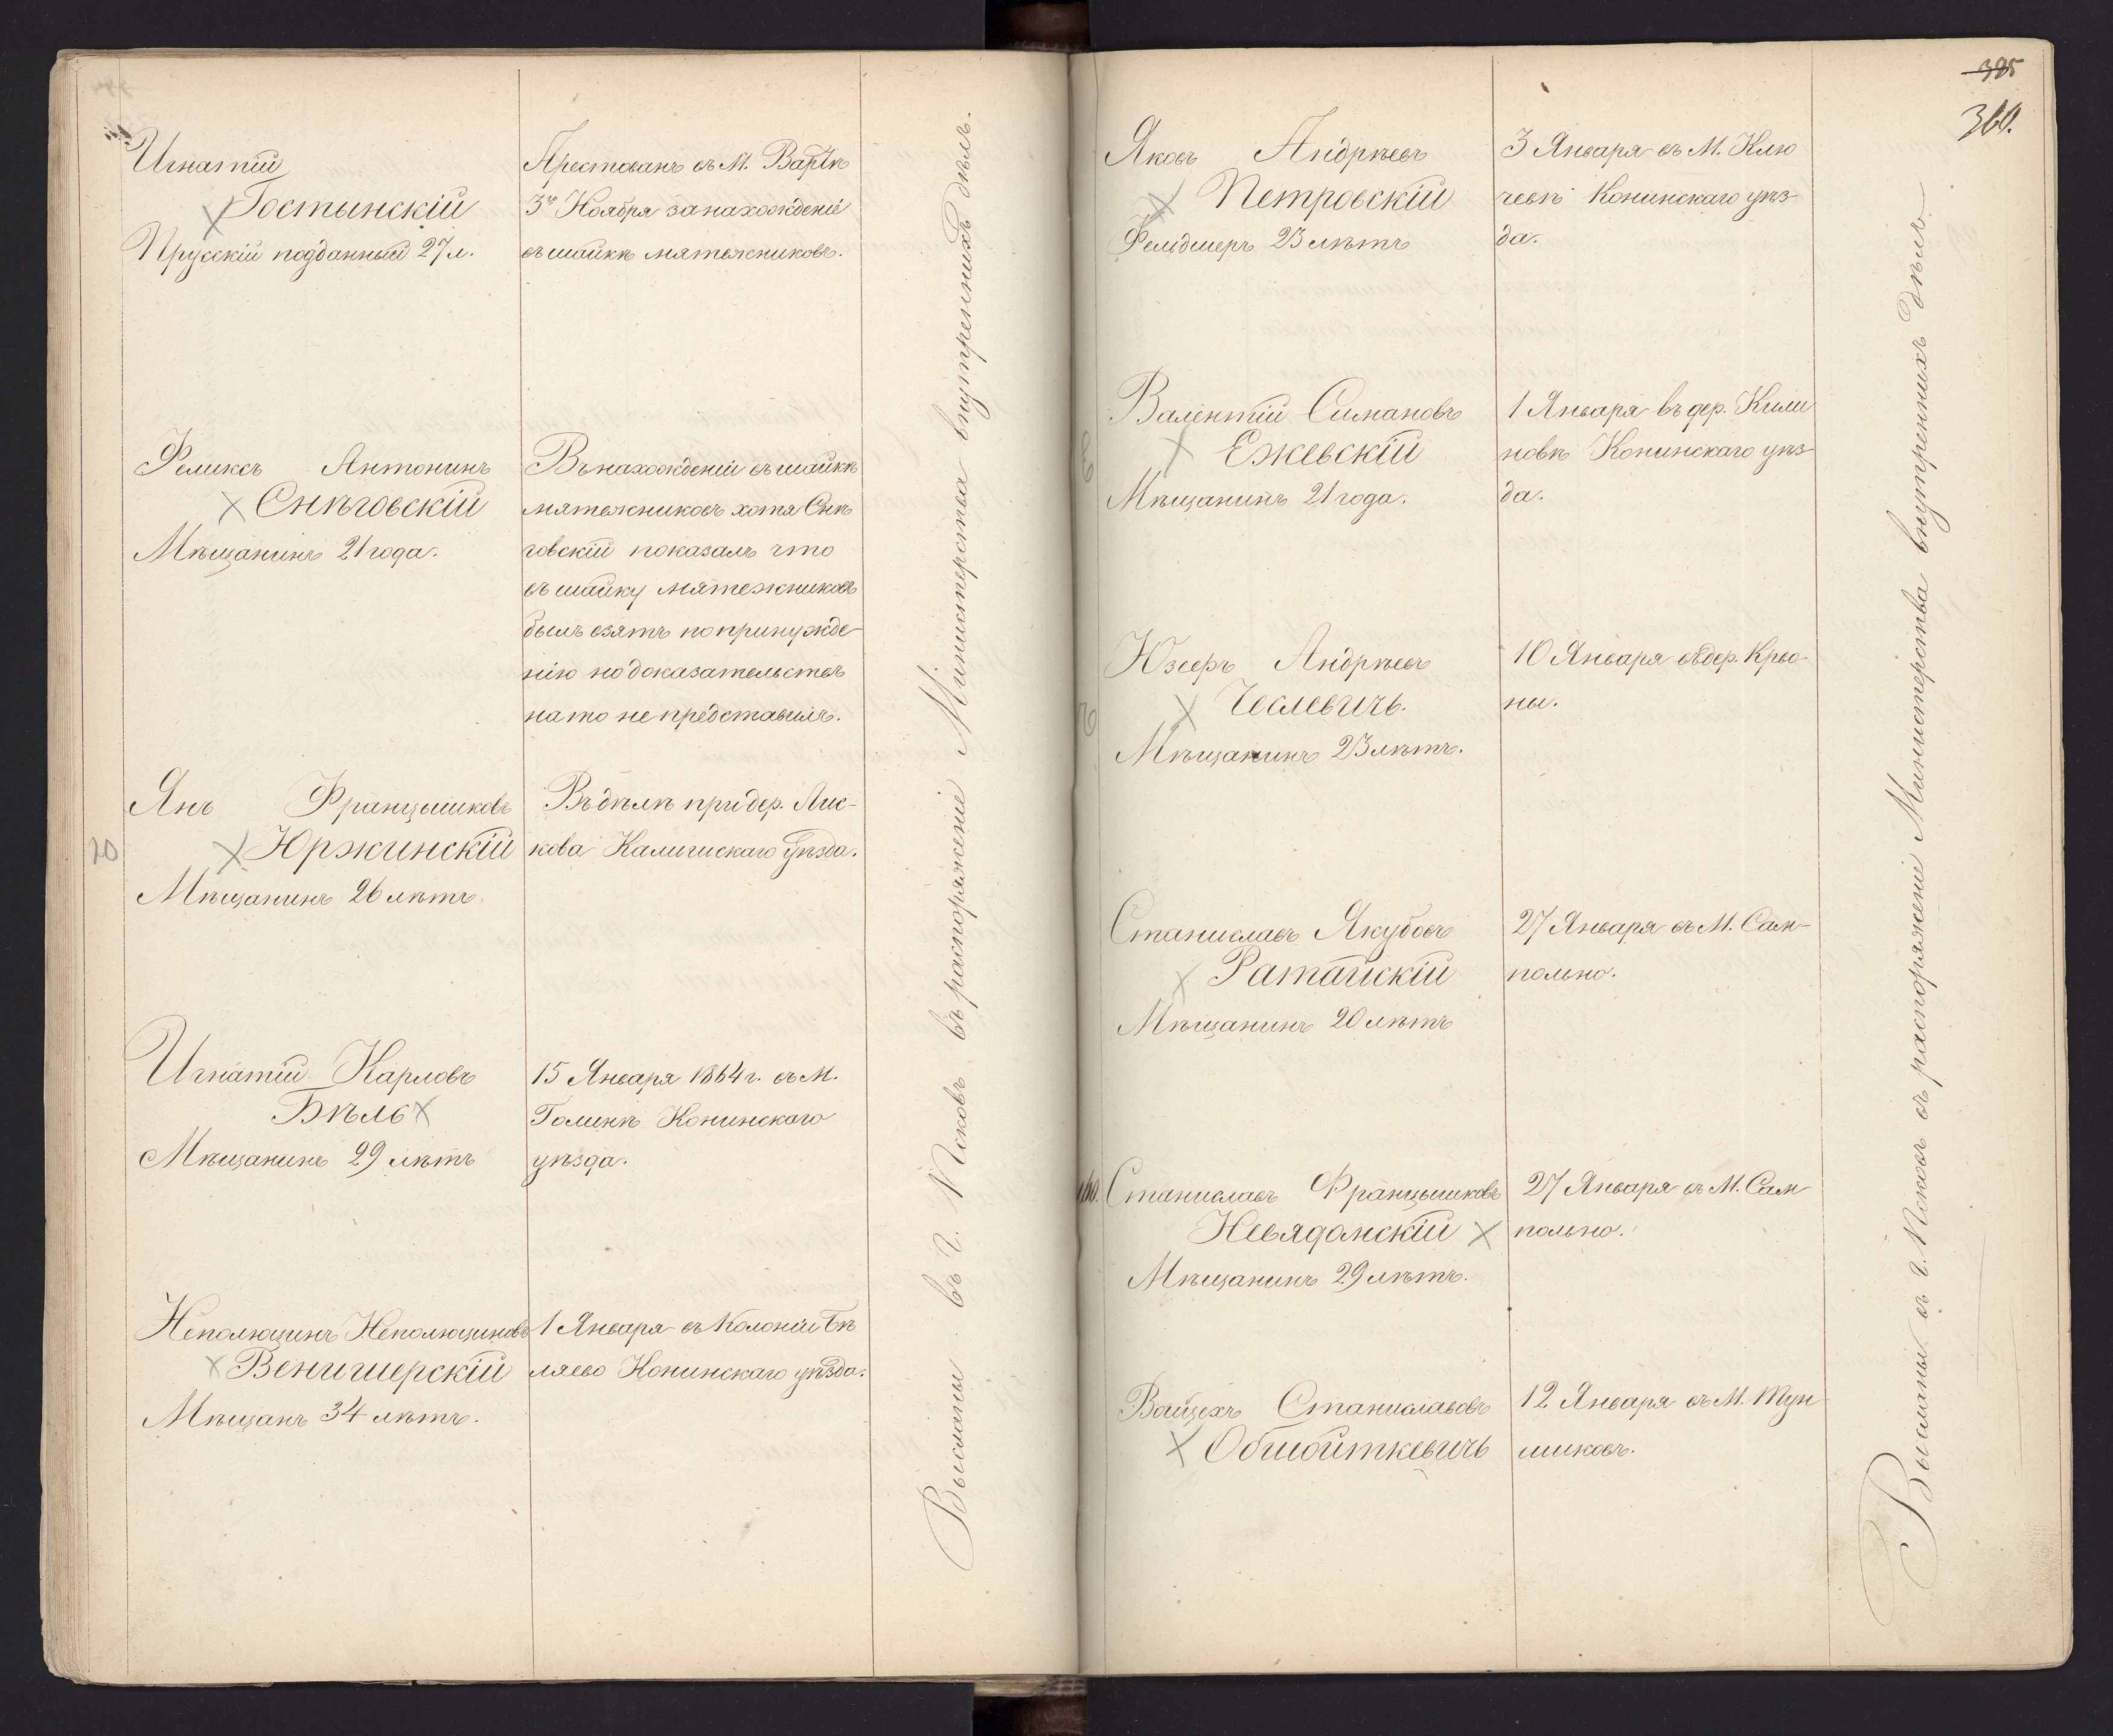 Игнатій
Гостынскій
Прусскій подданный 27 л.
Арестованъ въ М. Вартѣ
3го Ноября за нахожденіе
въ шайкѣ мятежниковъ.
Феликсъ Антонинъ
Снѣговскій
Мѣщанинъ 21 года.
Въ нахожденіи въ шайкѣ
мятежниковъ хотя Снѣ
говскій показалъ что
въ шайку мятежниковъ
былъ взятъ по принужде-
нію но доказательствъ
на то не представилъ.
20
Янъ Францишковъ
Юржинскій
Мѣщанинъ 26 лѣтъ.
Въ дѣлѣ при дер. Лис-
кова Калишскаго уѣзда.
Игнатій Карловъ
Бѣль
Мѣщанинъ 29 лѣтъ
15 Января 1864 г. въ М.
Голинѣ Конинскаго
уѣзда.
Непомуцинъ Непомуциновъ
Венгиерскій
Мѣщанъ 34 лѣтъ.
1 Января въ Колоніи Бѣ
ляево Конинскаго уѣзда.
Высланы въ г. Псковъ въ распоряженіе Министерства внутреннихъ дѣлъ.
385
360.
Яковъ Андрѣевъ
Петровскій
Фельдшеръ 23 лѣтъ
3 Января въ М. Клю
чевѣ Конинскаго уѣз-
да.
Валентій Симановъ
Ежевскій
Мѣщанинъ 21 года.
1 Января въ дер. Кили
новѣ Конинскаго уѣз-
да.
Юзефъ Андрѣевъ
Чеслевичъ.
Мѣщанинъ 23 лѣтъ.
10 Января въ дер. Крво-
ны.
Станиславъ Якубовъ
Ратайскій
Мѣщанинъ 20 лѣтъ
27 Января въ М. Сам-
польно.
Станиславъ Францишковъ
Невядомскій
Мѣщанинъ 29 лѣтъ.
27 Января въ М. Сам
польно.
Войцехъ Станиславовъ
Обшойткевичъ
12 Января въ М. Тун
шковъ.
Высланы въ г. Псковъ въ распоряженіе Министерства внутреннихъ дѣлъ